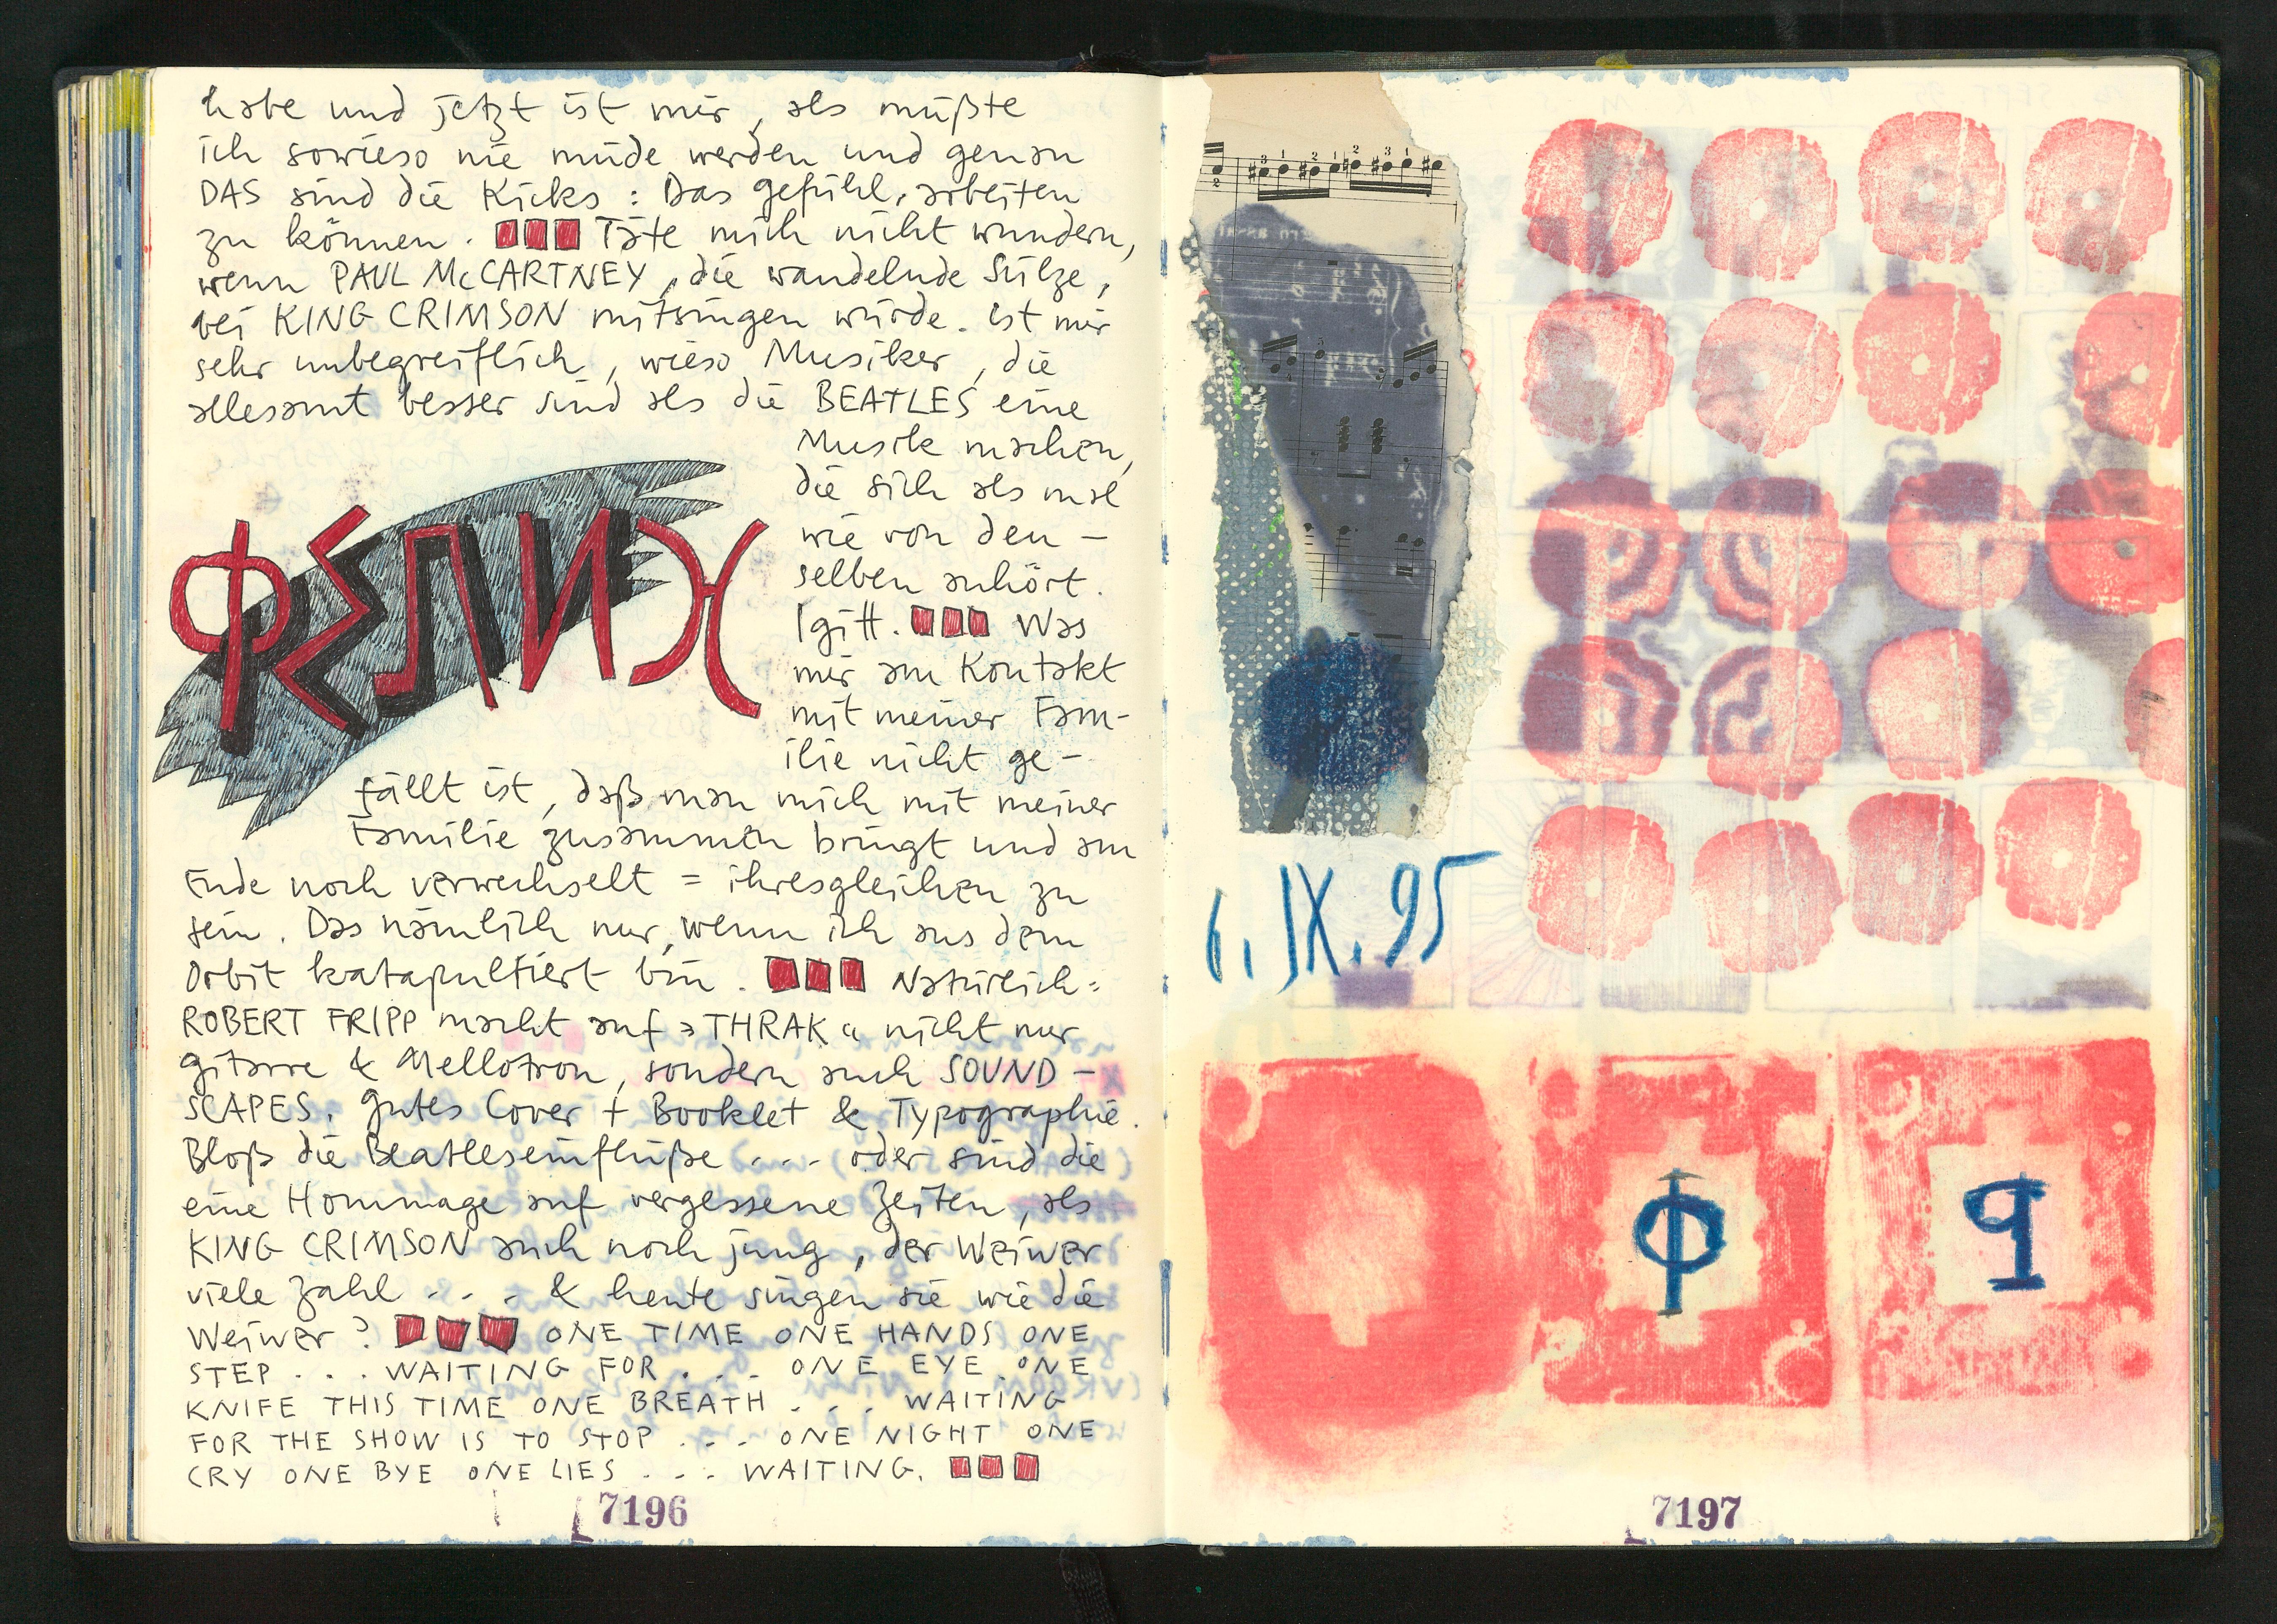 habe und jetzt ist mir, als müßte
ich sowieso nie müde werden und genau
DAS sind die Kicks: Das gefühl, arbeiten
zu können. Täte mich nicht wundern,
wenn PAUL McCARTNEY, die wandelnde Sülze,
bei KING CRIMSON mitsingen würde. Ist mir
sehr unbegreiflich, wieso Musiker, die
allesamt besser sind als die BEATLES eine
Musik machen,
die sich als mal
wie von den-
selben anhört.
Igitt. Was
mir am Kontakt
mit meiner Fam-
ilie nicht ge-
ФЕЛИХ
fällt ist, daß man mich mit meiner
Familie zusammen bringt und am
Ende noch verwechselt = ihresgleichen zu
sein. Das nämlich nur, wenn ich aus dem
Orbit katapultiert bin. Natürlich:
ROBERT FRIPP macht auf »THRAK« nicht nur
gitarre & Mellotron, sondern auch SOUND-
SCAPES. gutes Cover + Booklet & Typographie.
Bloß die Beatleseinflüße ... oder sind die
eine Hommage auf vergessene Zeiten, als
KING CRIMSON auch noch jung, der Weiwer
viele Zahl ... & heute singen sie wie die
Weiwer? ONE TIME ONE HANDS ONE
STEP ... WAITING FOR ... ONE EYE ONE
KNIFE THIS TIME ONE BREATH ... WAITING
FOR THE SHOW IS TO STOP ... ONE NIGHT ONE
CRY ONE BYE ONE LIES ... WAITING.
7196
6. IX. 95
Ф
q
7197